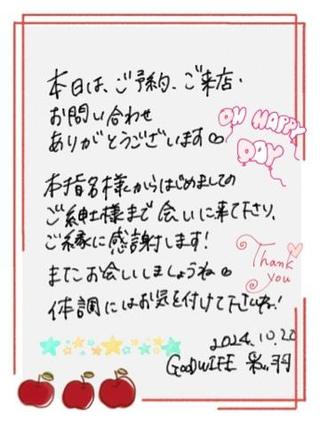 本日は、ご予約、ご来店、
お問い合わせ
ありがとうございます∞
OH HAPPY
DAY
本指名様からはじめましての
ご紳士様まで会いに来て下さり、
ご縁に感謝します!
Thank
you
またお会いしましょうね∞
体調にはお気を付けて下さいね!
2024.10.22
GOODWIFE